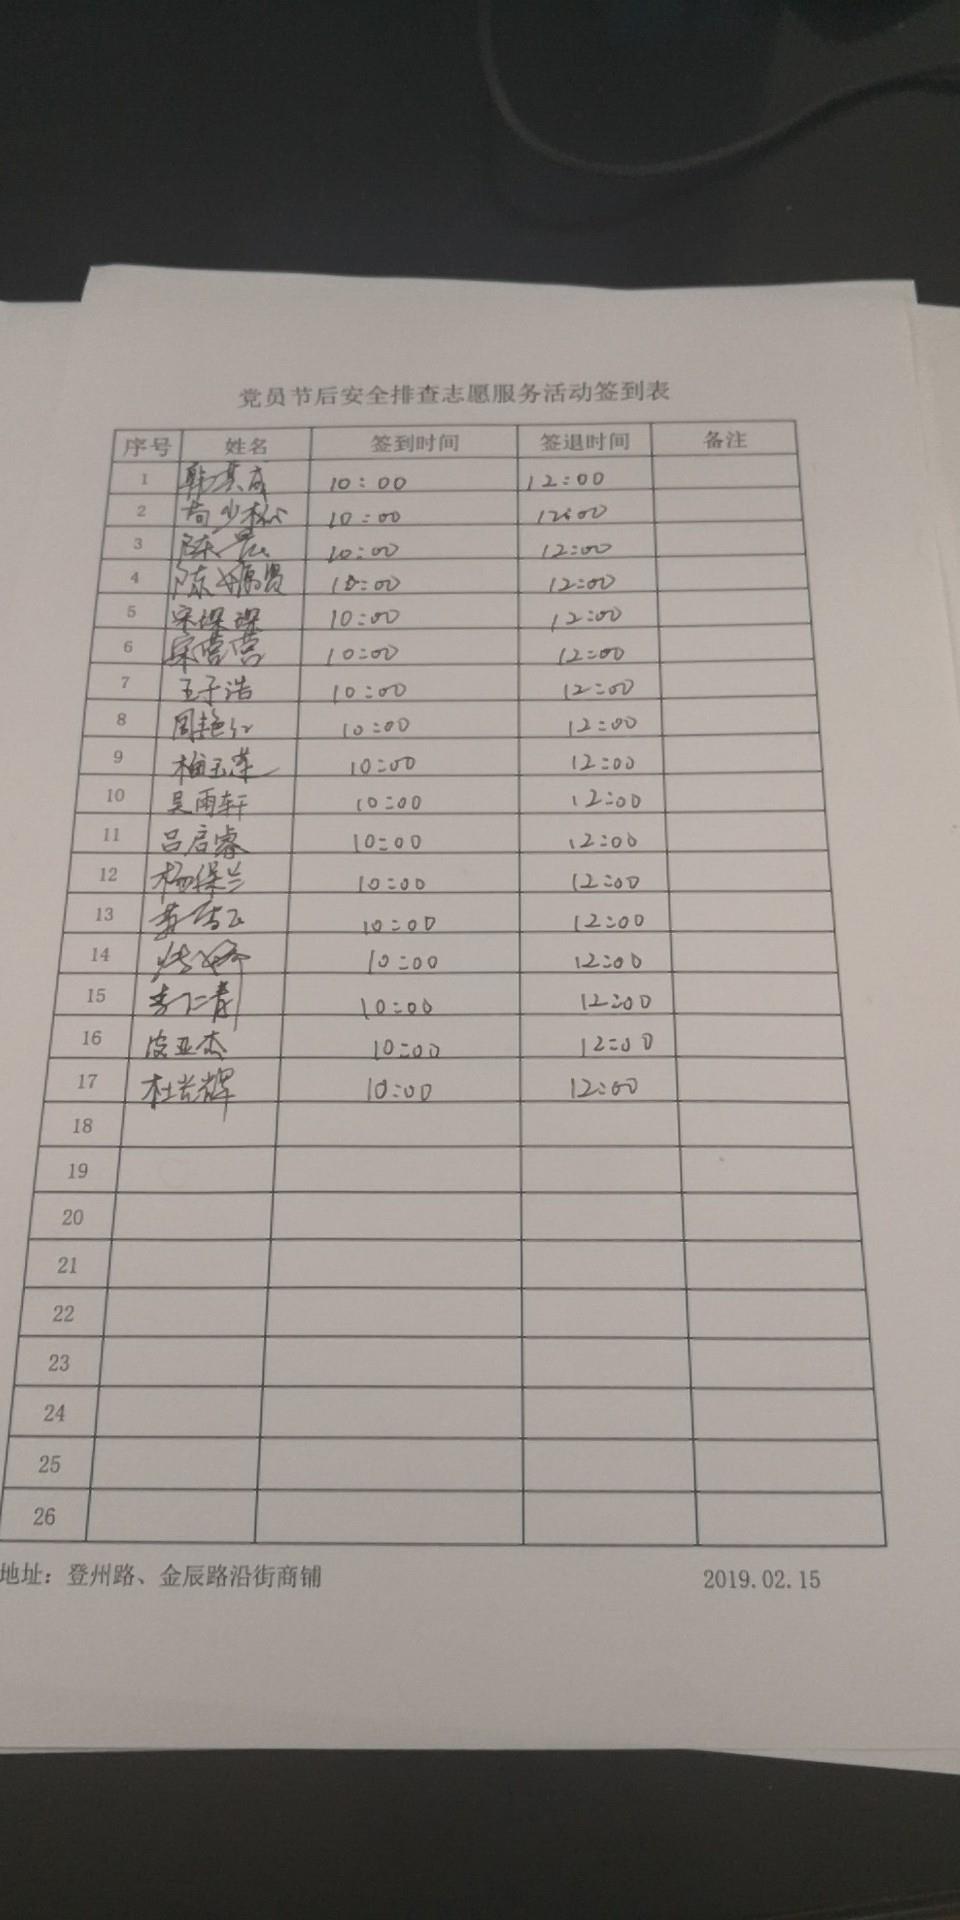 党员节后安全排查志愿服务活动签到表
序号 姓名 签到时间 签退时间 备注
1 10:00 12:00
2 10:00 12:00
3 陈 10:00 12:00
4 陈 10:00 12:00
5 宋琛琛 10:00 12:00
6 宋营营 10:00 12:00
7 王子浩 10:00 12:00
8 周艳红 10:00 12:00
9 10:00 12:00
10 吴雨轩 10:00 12:00
11 吕启睿 10:00 12:00
12 杨保兰 10:00 12:00
13 10:00 12:00
14 10:00 12:00
15 李仁青 10:00 12:00
16 亚杰 10:00 12:00
17 杜长辉 10:00 12:00
18
19
20
21
22
23
24
25
26
地址：登州路、金辰路沿街商铺 2019.02.15